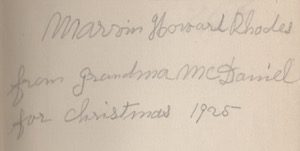 Marvin Howard Rhodes
from Grandma McDaniel
for Christmas 1925